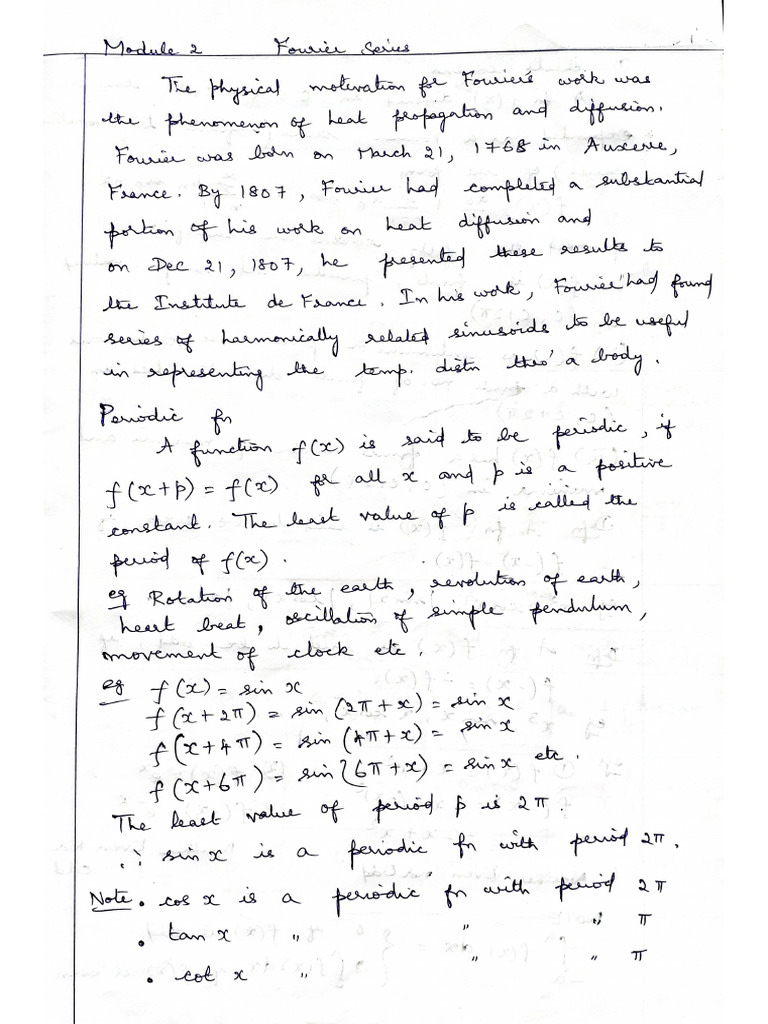 Module 2 Fourier Series
The physical motivation for Fourier's work was
the phenomenon of heat propagation and diffusion.
Fourier was born on March 21, 1768 in Auxerre,
France. By 1807, Fourier had completed a substantial
portion of his work on heat diffusion and
on Dec 21, 1807, he presented these results to
the Institute de France. In his work, Fourier had found
series of harmonically related sinusoids to be useful
in representing the temp. distn thro' a body.
Periodic fn
A function f(x) is said to be periodic, if
f(x+p) = f(x) for all x and p is a positive
constant. The least value of p is called the
period of f(x).
eg Rotation of the earth, revolution of earth,
heart beat, oscillation of simple pendulum,
movement of clock etc.
eg f(x) = sin x
f(x+2π) = sin (2π+x) = sin x
f(x+4π) = sin (4π+x) = sin x
f(x+6π) = sin (6π+x) = sin x etc.
The least value of period p is 2π.
∴ sin x is a periodic fn with period 2π.
Note • cos x is a periodic fn with period 2π
• tan x " " " π
• cot x " " " π